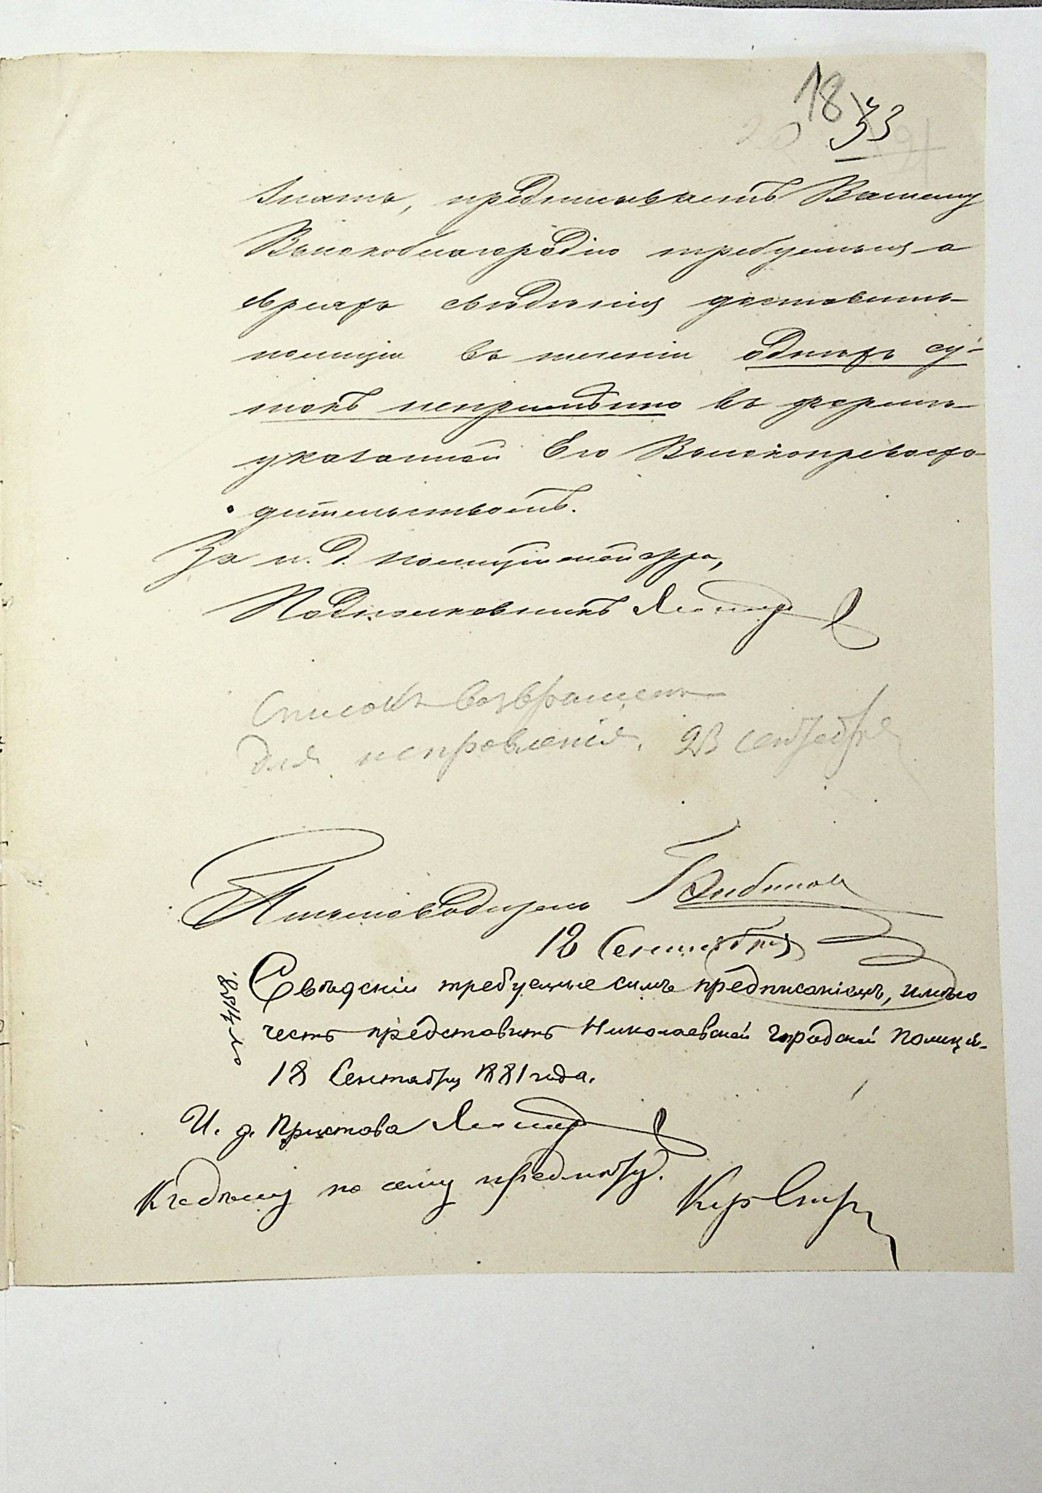 18 33
знать, предписываетъ Вашему
Высокоблагородію требуемыя о
свѣдѣнія доставить
полиціи въ теченіи однѣхъ су-
токъ непремѣнно въ формѣ
указанной Его Высокопревосхо-
дительствомъ.
За и. д. полиціймейстера,
Подполковникъ
Списокъ возвращенъ
для исправленія. 23 сентября
Письмоводитель
18 Сентября
Свѣдѣнія требуемые симъ предписаніемъ, имѣю
честь представить Николаевской городской Полиціи.
18 Сентября 1881 года.
И. д. Пристава
К дѣлу по сему предмету.